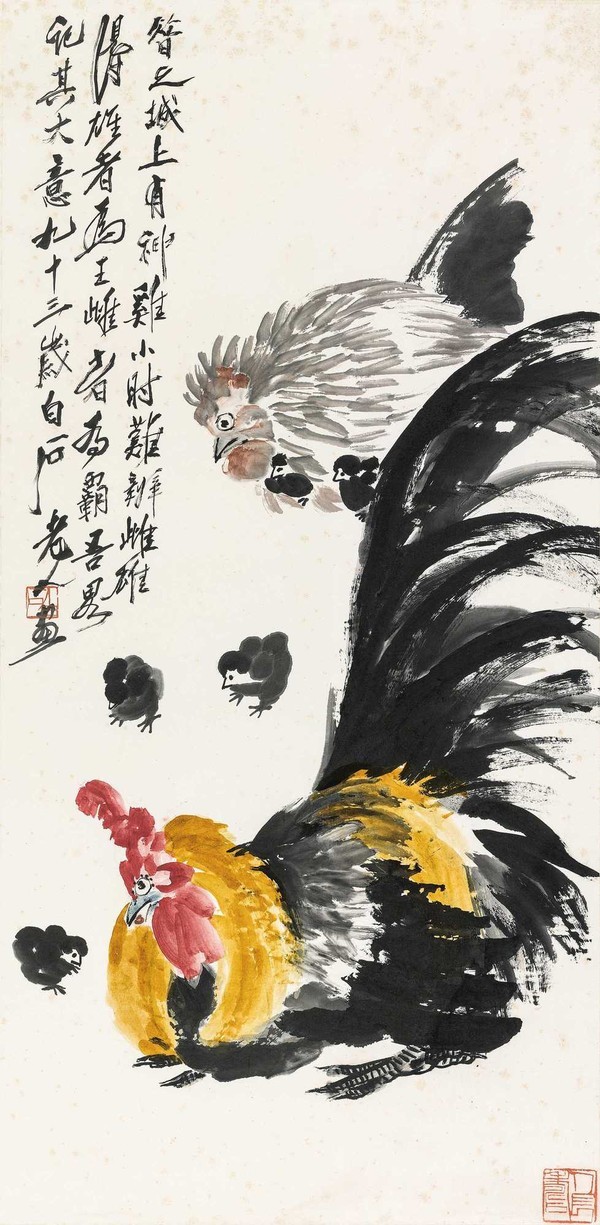 之城上有神雞小时難辨雌雄
得雄者為王雌者为霸吾畧
記其大意九十三歲白石老人畫